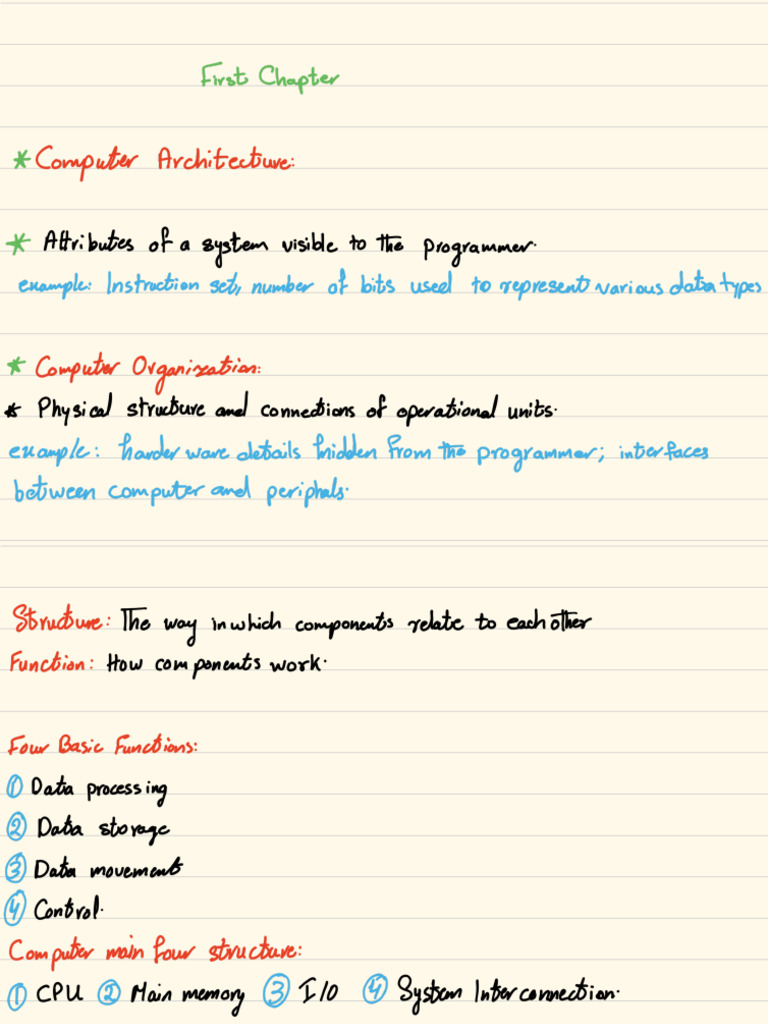 First Chapter
* Computer Architecture:
* Attributes of a system visible to the programmer.
example: Instruction set, number of bits used to represent various data types
* Computer Organization:
* Physical structure and connections of operational units.
example: harder ware details hidden from the programmer; interfaces
between computer and periphals.
Structure: The way in which components relate to each other
Function: How components work.
Four Basic Functions:
① Data processing
② Data storage
③ Data movement
④ Control.
Computer main four structure:
① CPU ② Main memory ③ I/O ④ System Interconnection.